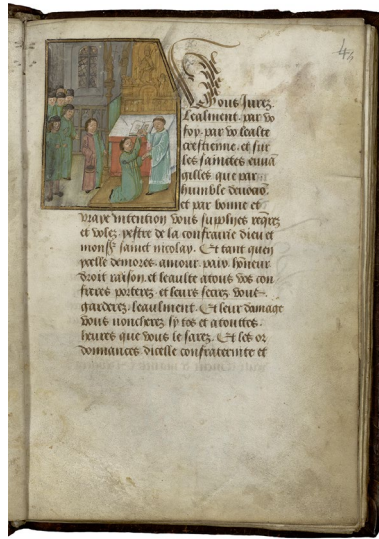 43
Vous Jurez
Lealment. par vo
foy. par vo lealte
crestienne. et sur
les sainctes euua͞
gilles que par
humble deuoc͞o͞
et par bonne et
vraye intention vous supplies reqrez
et volez estre de la confrarie dieu et
mons͞r sainct nicolay. Et tant quen
ycelle demores amour. paix. ho͞neur
droit raison. et leaulte a tous vos con
freres porterez et leurs secrez vous
garderez. leaulment. Et leur damage
vous noncherez sy tos et a touttes.
heures que vous le sarez. Et les or
donnances dicelle confraternite et